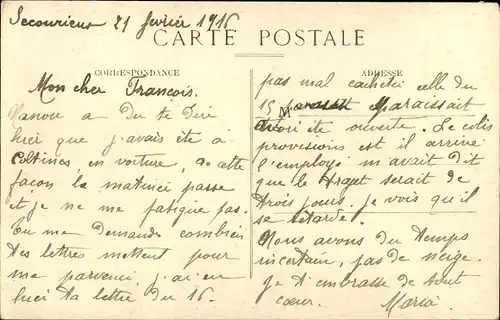 Secourieu 21 fevrier 1916
CARTE POSTALE
CORRESPONDANCE
Mon cher Francois.
Nanou a du te dire
hier que j'avais été à
en voiture, de cette
façon la matinei passe
et je ne me fatigue pas.
Tu me demande combien
des lettres mettent pour
me parvenir, j'ai eu
hier ta lettre du 16.
ADRESSE
pas mal cachetei celle du
15 paraissait
avoir ete ouverte. Le colis
provisions est il arrivé
l'employé m'avait dit
que le trajet serait de
trois jours. je vois qu'il
se retarde.
Nous avons du temps
incertain, pas de neige.
Je t'embrasse de tout
cœur. Maria